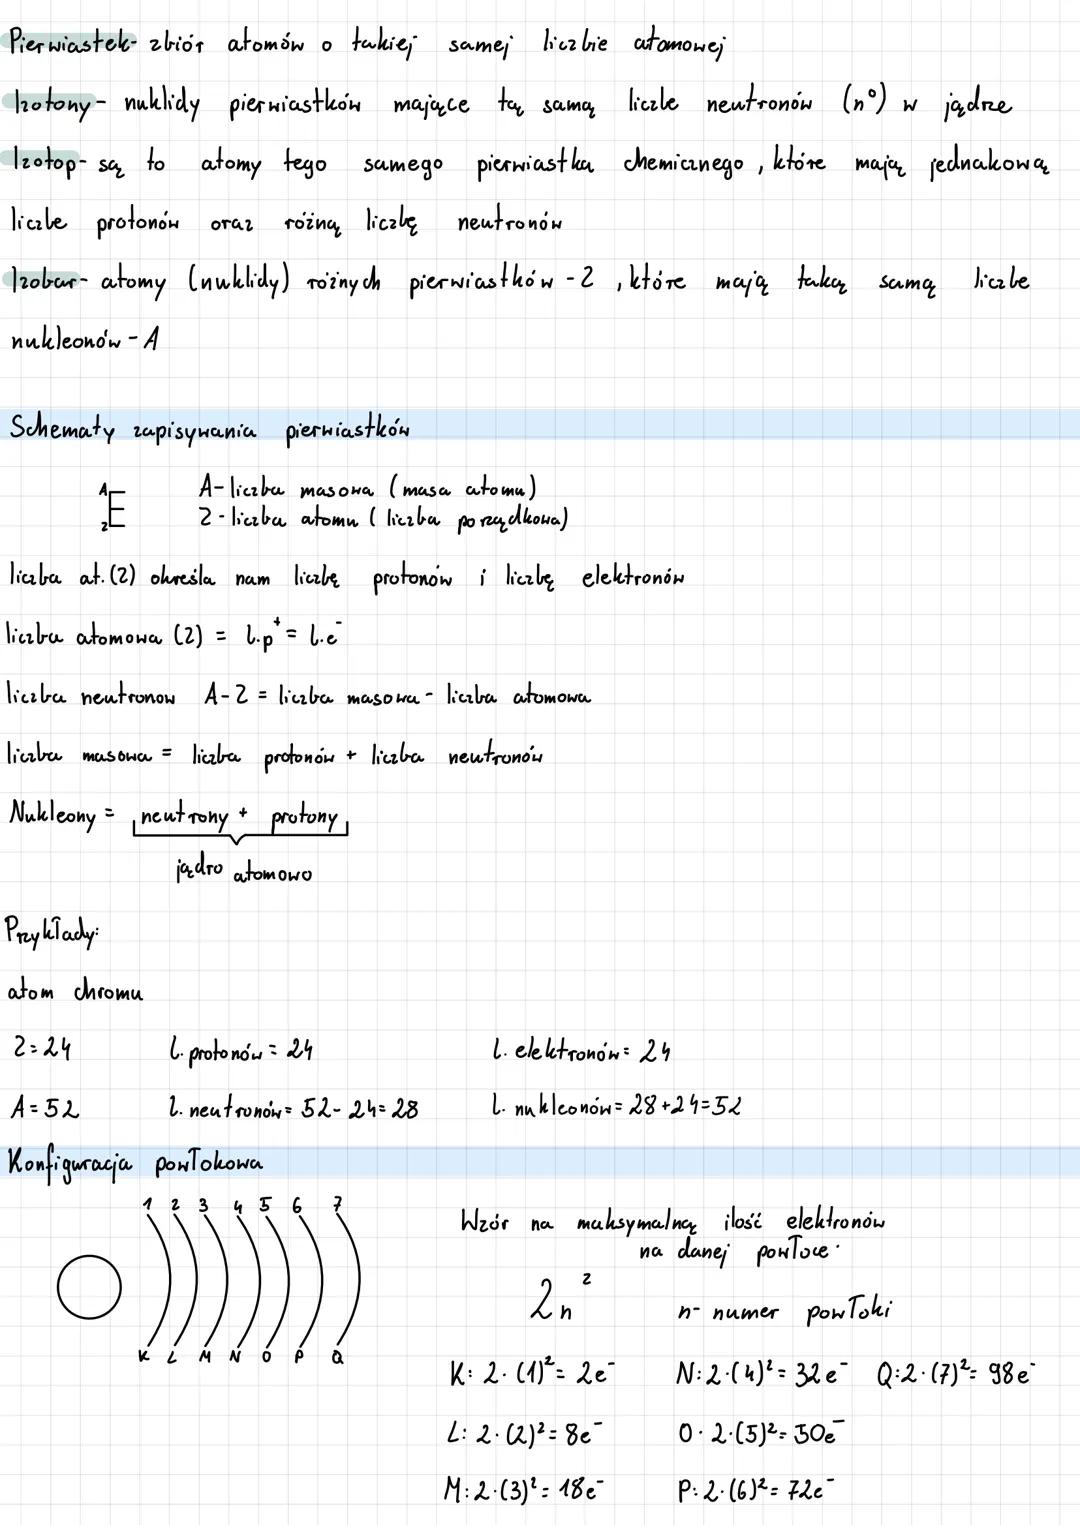 Pierwiastek- zbiór atomów o takiej samej liczbie atomowej
Izotony- nuklidy pierwiastków mające tą samą liczbe neutronów (n⁰) w jądrze
Izotop- są to atomy tego samego pierwiastka chemicznego, które mają jednakową
liczbe protonów oraz różną liczbę neutronów
Izobar- atomy (nuklidy) różnych pierwiastków -Z, które mają taką samą liczbe
nukleonów - A
Schematy zapisywania pierwiastków
A
E
Z
A-liczba masowa (masa atomu)
Z-liczba atomu (liczba porządkowa)
liczba at. (Z) określa nam liczbę protonów i liczbę elektronów
liczba atomowa (Z) = l.p⁺ = l.e⁻
liczba neutronow A-Z = liczba masowa - liczba atomowa
liczba masowa = liczba protonów + liczba neutronów
Nukleony = neutrony + protony
jądro atomowo
Przykłady:
atom chromu
Z=24 l. protonów = 24 l. elektronów= 24
A=52 l. neutronów= 52-24=28 l. nukleonów= 28+24=52
Konfiguracja powłokowa
1 2 3 4 5 6 7
K L M N O P Q
Wzór na maksymalną ilość elektronów
na danej powłoce:
2n² n- numer powłoki
K: 2·(1)²= 2e⁻ N: 2·(4)²= 32e⁻ Q: 2·(7)²= 98e⁻
L: 2·(2)²= 8e⁻ O: 2·(5)²= 50e⁻
M: 2·(3)²= 18e⁻ P: 2·(6)²= 72e⁻